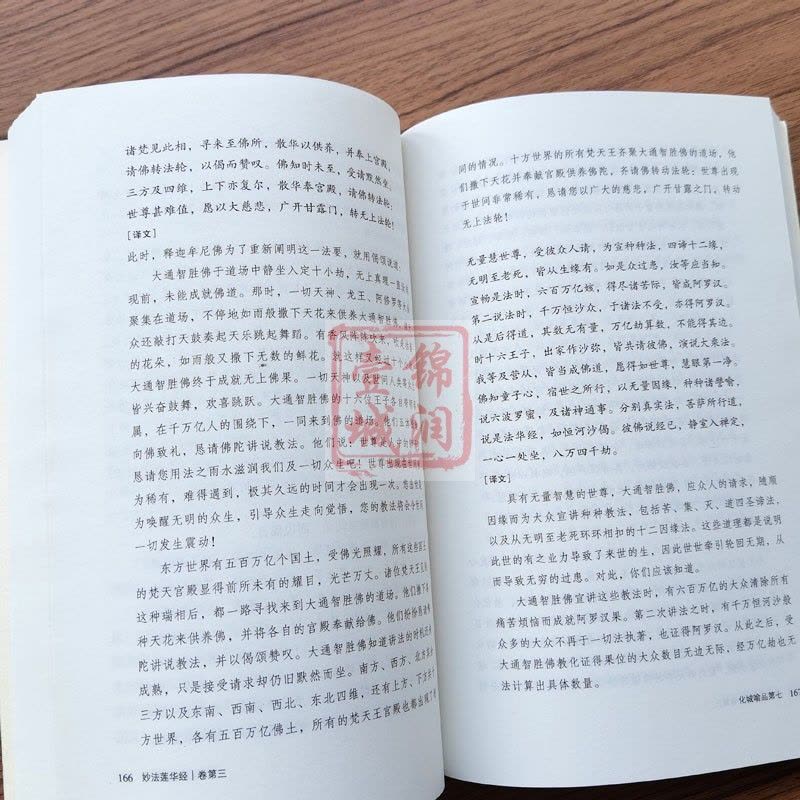 诸梵见此相，寻来至佛所，散华以供养，并奉上宫殿，
请佛转法轮，以偈而赞叹。佛知时未至，受请默然坐。
三方及四维，上下亦复尔，散华奉宫殿，请佛转法轮：
世尊甚难值，愿以大慈悲，广开甘露门，转无上法轮！
[译文]
此时，释迦牟尼佛为了重新阐明这一法要，就用偈颂说道：
大通智胜佛于道场中静坐入定十小劫，无上真理一直没有
现前，未能成就佛道。那时，一切天神、龙王、阿修罗等大众
聚集在道场，不停地如雨般撒下天花来供养大通智胜佛，天
众还敲打天鼓奏起天乐跳起舞蹈。有香风阵阵吹来，
的花朵，如雨般又撒下无数的鲜花。就这样又经过十个小
大通智胜佛终于成就无上佛果。一切天神以及世间人类等
皆兴奋鼓舞，欢喜跳跃。大通智胜佛的十六位王子各自带
属，在千万亿人的围绕下，一同来到佛的道场。他们五体
向佛致礼，恳请佛陀讲说教法。他们说：世尊是人中
恳请您用法之雨水滋润我们及一切众生吧！世尊出现在世间
为稀有，难得遇到，极其久远的时间才会出现一次。您
为唤醒无明的众生，引导众生走向觉悟，您的教法将会令世间
一切发生震动！
东方世界有五百万亿个国土，受佛光照耀，所有这些国土
的梵天宫殿显得前所未有的耀目，光芒万丈。诸位梵天王见到
这种瑞相后，都一路寻找来到大通智胜佛的道场。他们撒下各
种天花来供养佛，并将各自的宫殿奉献给佛。他们纷纷恳请佛
陀讲说教法，并以偈颂赞叹。大通智胜佛知道讲法的时机还未
成熟，只是接受请求却仍旧默然而坐。南方、西方、北方
三方以及东南、西南、西北、东北四维，还有上方、下方共十
方世界，各有五百万亿佛土，所有的梵天王宫殿也都出现了
166 妙法莲华经｜卷第三
同的情况。十方世界的所有梵天王齐聚大通智胜佛的道场，他
们撒下天花并奉献宫殿供养佛陀，齐请佛转动法轮：世尊出现
于世间非常稀有，恳请您以广大的慈悲，广开甘露之门，转动
无上法轮！
无量慧世尊，受彼众人请，为宣种种法，四谛十二缘，
无明至老死，皆从生缘有。如是众过患，汝等应当知。
宣畅是法时，六百万亿姟，得尽诸苦际，皆成阿罗汉。
第二说法时，千万恒沙众，于诸法不受，亦得阿罗汉。
从是后得道，其数无有量，万亿劫算数，不能得其边。
时十六王子，出家作沙弥，皆共请彼佛，演说大乘法。
我等及营从，皆当成佛道，愿得如世尊，慧眼第一净。
佛知童子心，宿世之所行，以无量因缘，种种诸譬喻，
说六波罗蜜，及诸神通事。分别真实法，菩萨所行道，
说是法华经，如恒河沙偈。彼佛说经已，静室入禅定，
一心一处坐，八万四千劫。
[译文]
具有无量智慧的世尊，大通智胜佛，应众人的请求，随顺
因缘而为大众宣讲种种教法，包括苦、集、灭、道四圣谛法，
以及从无明至老死环环相扣的十二因缘法。这些道理都是说明
此世的有之业力导致了来世的生，因此世世牵引轮回无期，从
而导致无穷的过患。对此，你们应该知道。
大通智胜佛宣讲这些教法时，有六百万亿的大众清除所有
痛苦烦恼而成就阿罗汉果。第二次讲法之时，有千万恒河沙般
众多的大众不再于一切法执著，也证得阿罗汉。从此之后，受
大通智胜佛教化证得果位的大众数目无边无际，经万亿劫也无
法计算出具体数量。
化城喻品第七 167
锦润
壹城